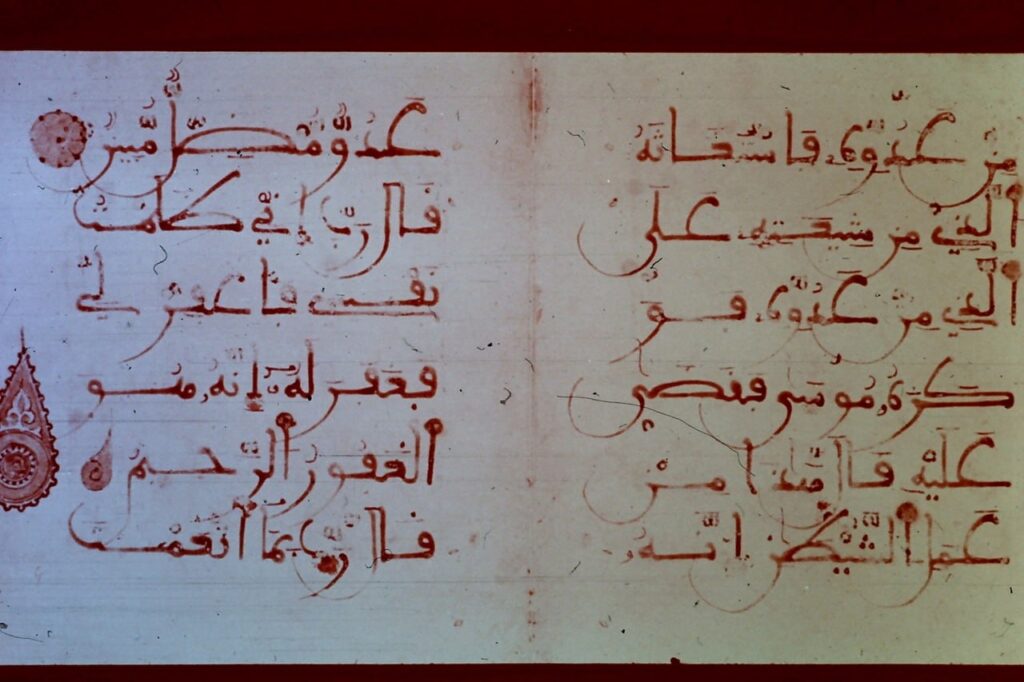 مِنْ عَدُوِّهِ فَاسْتَغَاثَهُ
الَّذِي مِن شِيعَتِهِ عَلَى
الَّذِي مِنْ عَدُوِّهِ فَوَ
كَزَهُ مُوسَى فَقَضَى
عَلَيْهِ قَالَ هَذَا مِنْ
عَمَلِ الشَّيْطَنِ إِنَّهُ
عَدُوٌّ مُّضِلٌّ مُّبِينٌ
قَالَ رَبِّ إِنِّي ظَلَمْتُ
نَفْسِي فَاغْفِرْ لِي
فَغَفَرَ لَهُ إِنَّهُ هُوَ
الْغَفُورُ الرَّحِيمُ
قَالَ رَبِّ بِمَا أَنْعَمْتَ